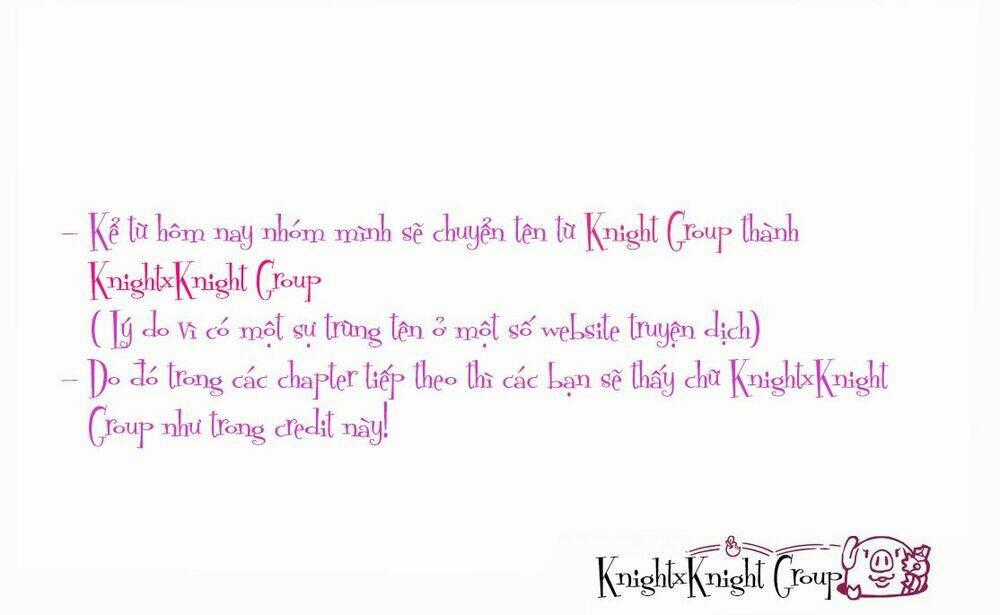 - Kể từ hôm nay nhóm mình sẽ chuyển tên từ Knight Group thành
KnightxKnight Group
( Lý do vì có một sự trùng tên ở một số website truyện dịch)
- Do đó trong các chapter tiếp theo thì các bạn sẽ thấy chữ KnightxKnight
Group như trong credit này!
KnightxKnight Group